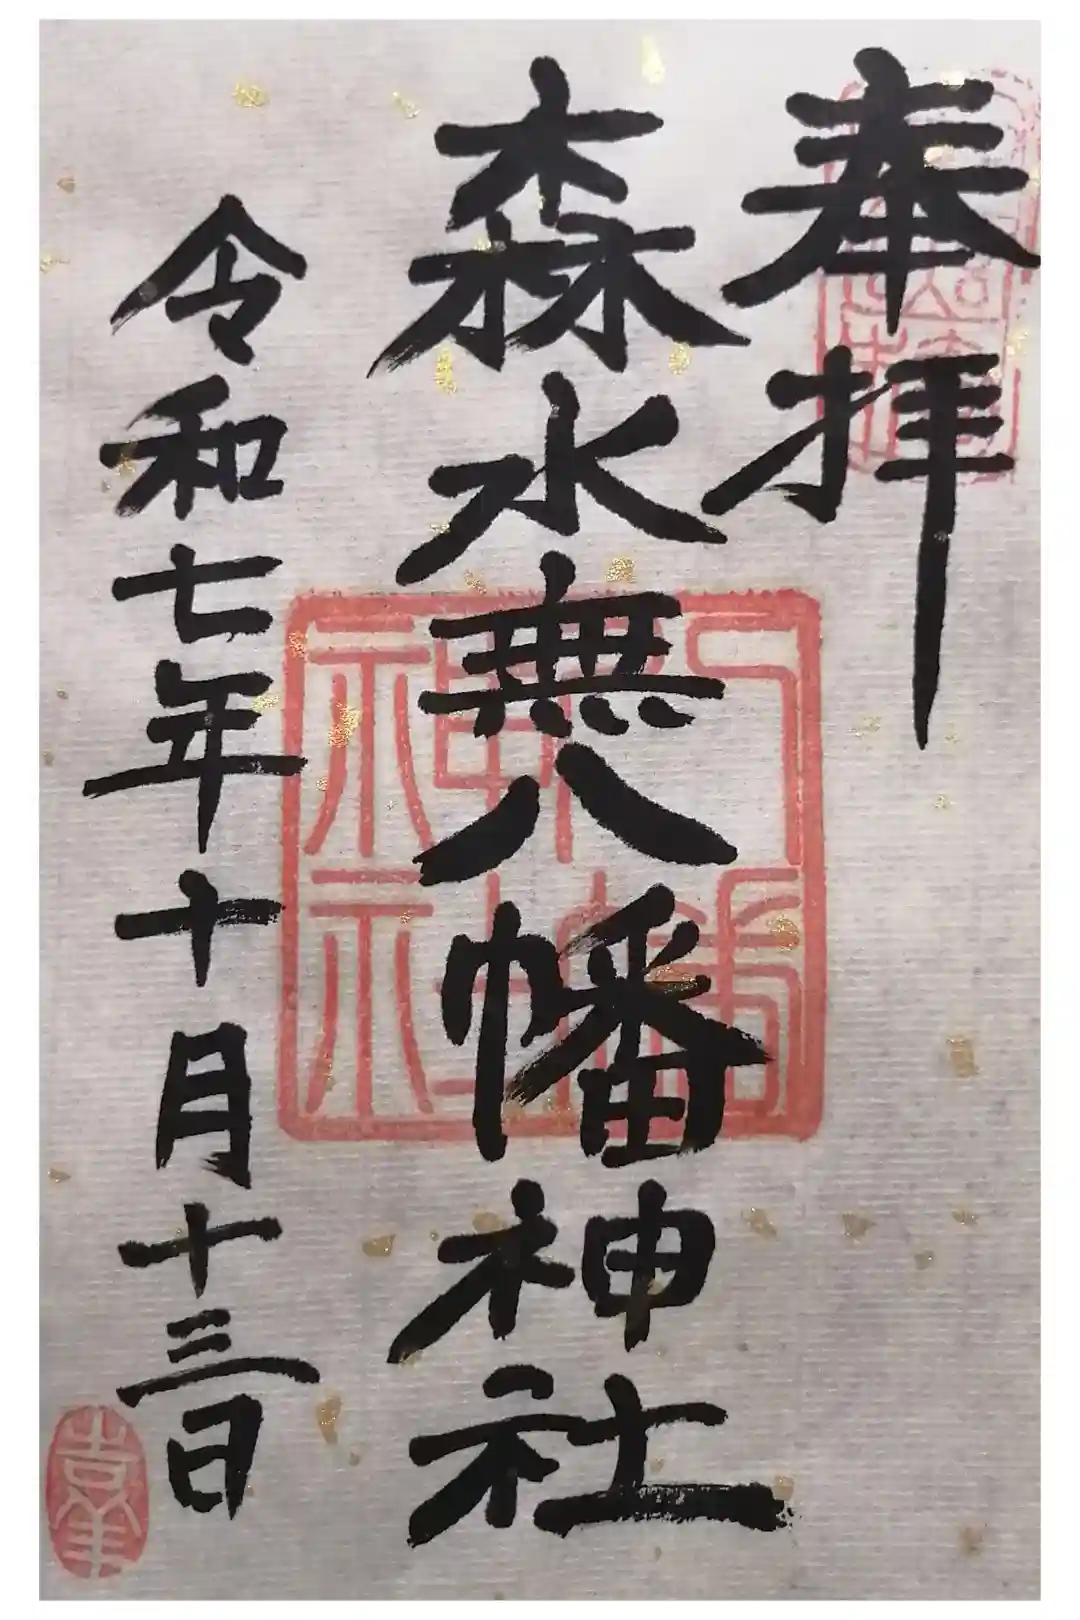 奉拝
森水無八幡神社
令和七年十月十三日
八幡
神社